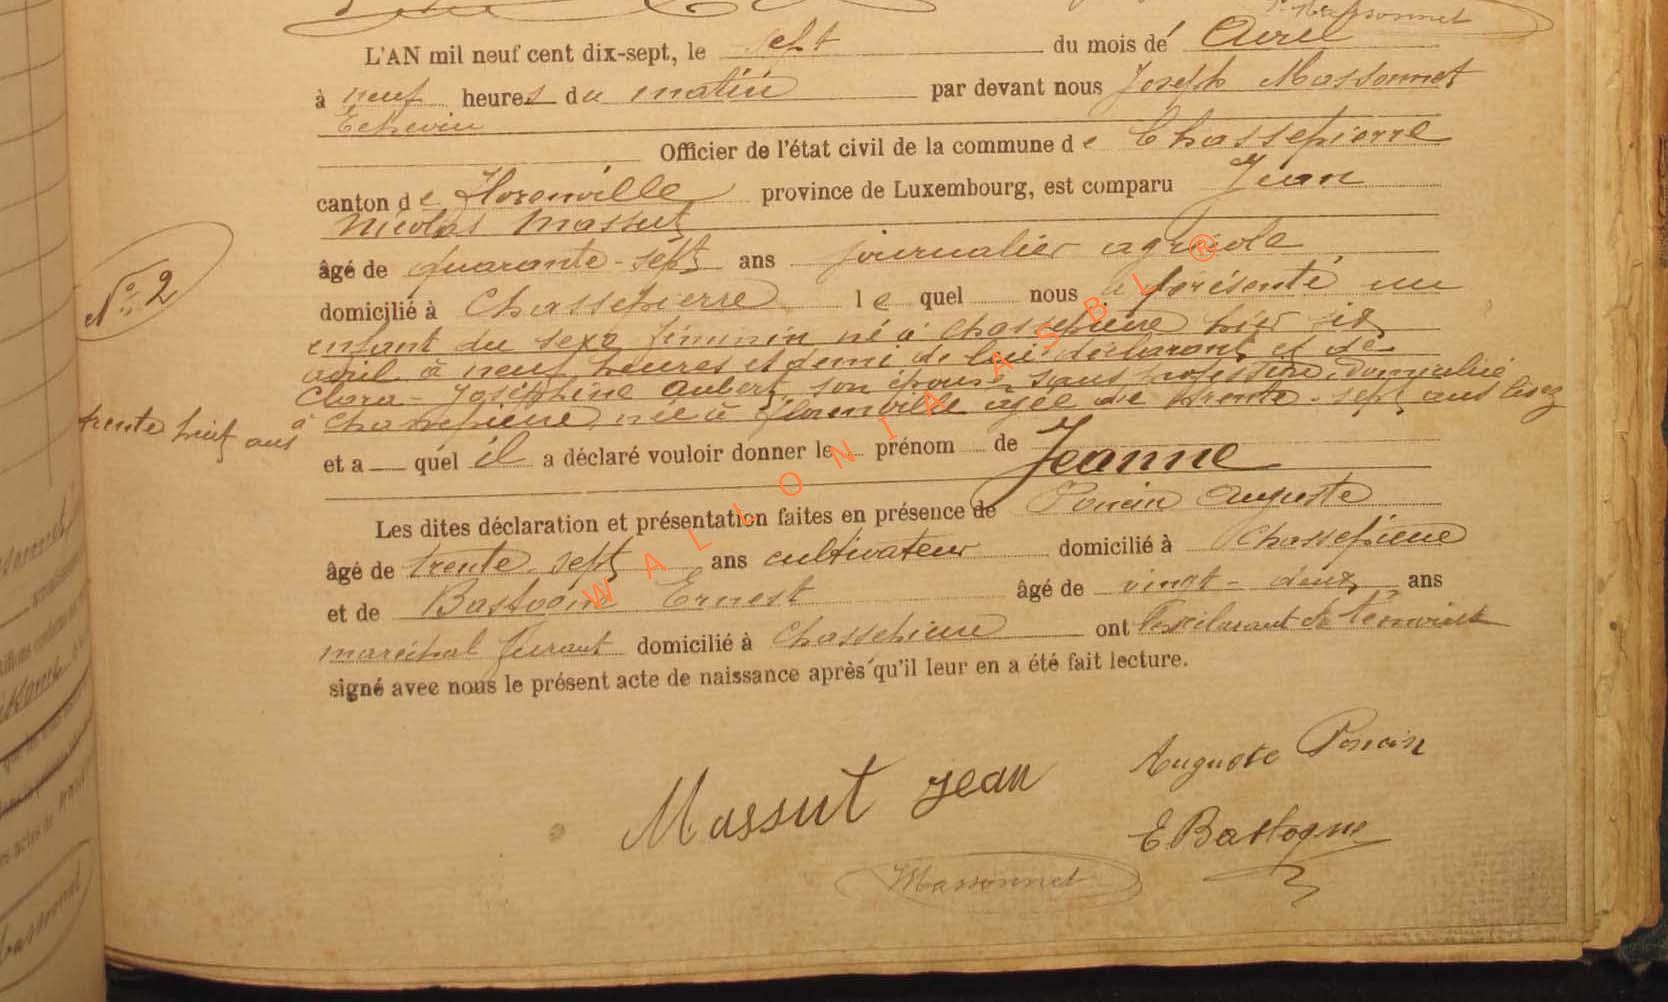 Massonnet
L'AN mil neuf cent dix-sept, le sept du mois de Avril
à neuf heures du matin par devant nous Joseph Massonnet
Echevin
Officier de l'état civil de la commune de Chassepierre
canton de Florenville province de Luxembourg, est comparu Jean
Nicolas Massut
âgé de quarante-sept ans journalier agricole
N° 2
domicilié à Chassepierre le quel nous a présenté un
enfant du sexe féminin né à Chassepierre hier six
avril à neuf heures et demi de lui déclarant et de
Clara-Joséphine Aubert son épouse sans profession domiciliée
à Chassepierre née à Florenville agée de trente-sept ans lisez
trente huit ans
et a quel il a déclaré vouloir donner le prénom de Jeanne
Les dites déclaration et présentation faites en présence de Poncin Auguste
âgé de trente-sept ans cultivateur domicilié à Chassepierre
et de Bastogne Ernest âgé de vingt-deux ans
maréchal ferant domicilié à Chassepierre ont
signé avec nous le présent acte de naissance après qu'il leur en a été fait lecture.
Massut jean
Auguste Poncin
E Bastogne
Massonnet
WALLONIA ASBL ®